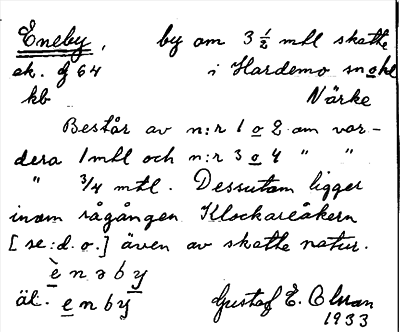 Eneby, by om 3 ½ mtl skatte
ek. bl 64 i Hardemo sn o hd
kb Närke
Består av n:r 1 o 2 om var-
dera 1 mtl och n:r 3 o 4 " "
" 3/4 mtl. Dessutom ligger
inom rågången Klockareåkern
[se: d. o.] även av skatte natur.
è n ə b y
äl. e n b y
Gustaf E. Olsson
1933